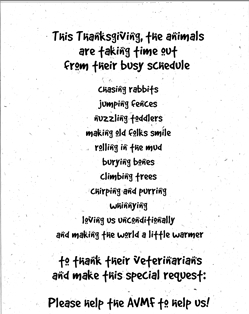 This Thanksgiving, the animals
are taking time out
from their busy schedule
chasing rabbits
jumping fences
nuzzling toddlers
making old folks smile
rolling in the mud
burying bones
climbing trees
chirping and purring
whinnying
loving us unconditionally
and making the world a little warmer
to thank their veterinarians
and make this special request:
Please help the AVMF to help us!